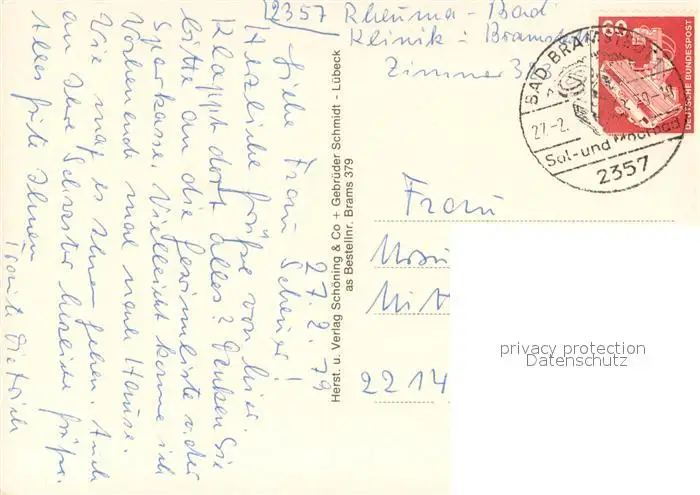 2357 Rheuma-Bad
Klinik : Bramstedt
Zimmer 3
60
DEUTSCHE BUNDESPOST
BAD BRAMSTEDT
27.-2.
Sol- und Moorbad
2357
27.2.79
Liebe Frau
Herzliche Grüße von hier.
Klappt dort alles? Denken Sie
bitte an die Gewinnliste v. der
Sparkasse. Vielleicht komme ich
Wochenende mal nach Hause.
Wie mag es Ihnen gehen. Auch
an Ihre Schwester herzliche Grüße.
Alles Gute Ihnen
Dietrich
Herst. u. Verlag Schöning & Co + Gebrüder Schmidt - Lübeck
as Bestellnr. Brams 379
Frau
2214
privacy protection
Datenschutz